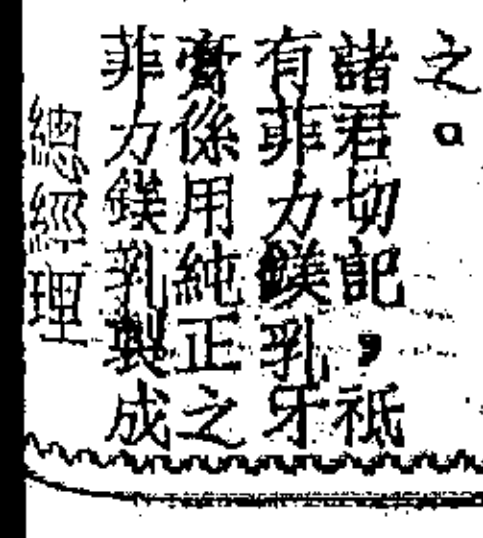 之。
諸君切記，祗
有菲力鎂乳牙
膏係用純正之
菲力鎂乳製成
總經理